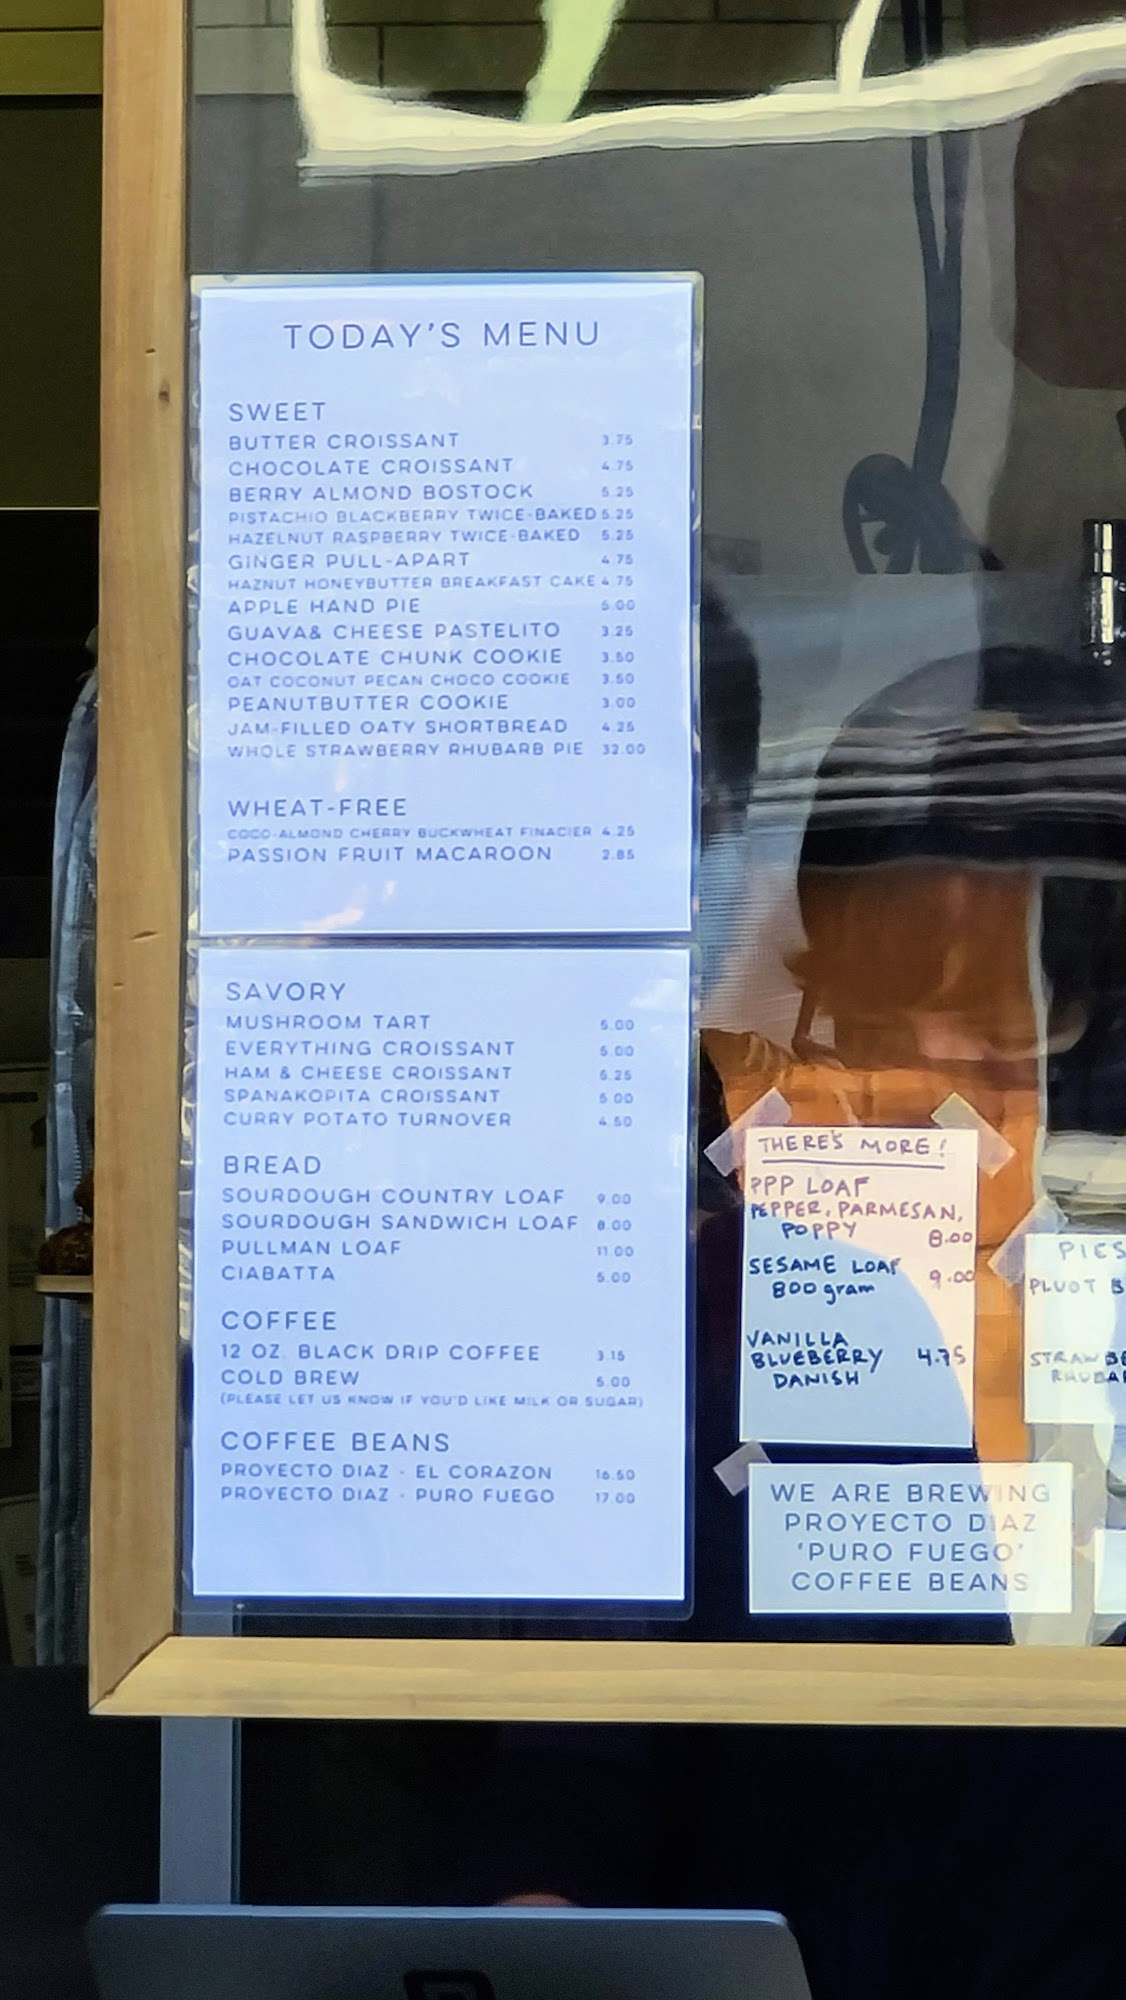 TODAY'S MENU
SWEET
BUTTER CROISSANT 3.75
CHOCOLATE CROISSANT 4.75
BERRY ALMOND BOSTOCK 5.25
PISTACHIO BLACKBERRY TWICE-BAKED 5.25
HAZELNUT RASPBERRY TWICE-BAKED 5.25
GINGER PULL-APART 4.75
HAZNUT HONEYBUTTER BREAKFAST CAKE 4.75
APPLE HAND PIE 5.00
GUAVA& CHEESE PASTELITO 3.25
CHOCOLATE CHUNK COOKIE 3.50
OAT COCONUT PECAN CHOCO COOKIE 3.50
PEANUTBUTTER COOKIE 3.00
JAM-FILLED OATY SHORTBREAD 4.25
WHOLE STRAWBERRY RHUBARB PIE 32.00
WHEAT-FREE
COCO-ALMOND CHERRY BUCKWHEAT FINACIER 4.25
PASSION FRUIT MACAROON 2.85
SAVORY
MUSHROOM TART 5.00
EVERYTHING CROISSANT 5.00
HAM & CHEESE CROISSANT 5.25
SPANAKOPITA CROISSANT 5.00
CURRY POTATO TURNOVER 4.50
BREAD
SOURDOUGH COUNTRY LOAF 9.00
SOURDOUGH SANDWICH LOAF 8.00
PULLMAN LOAF 11.00
CIABATTA 5.00
COFFEE
12 OZ. BLACK DRIP COFFEE 3.15
COLD BREW 5.00
(PLEASE LET US KNOW IF YOU'D LIKE MILK OR SUGAR)
COFFEE BEANS
PROYECTO DIAZ - EL CORAZON 16.50
PROYECTO DIAZ - PURO FUEGO 17.00
THERE'S MORE!
PPP LOAF
PEPPER, PARMESAN,
POPPY 8.00
SESAME LOAF 9.00
800 gram
VANILLA
BLUEBERRY 4.75
DANISH
PIES
PLUOT B
STRAWBE
RHUBA
WE ARE BREWING
PROYECTO DIAZ
'PURO FUEGO'
COFFEE BEANS